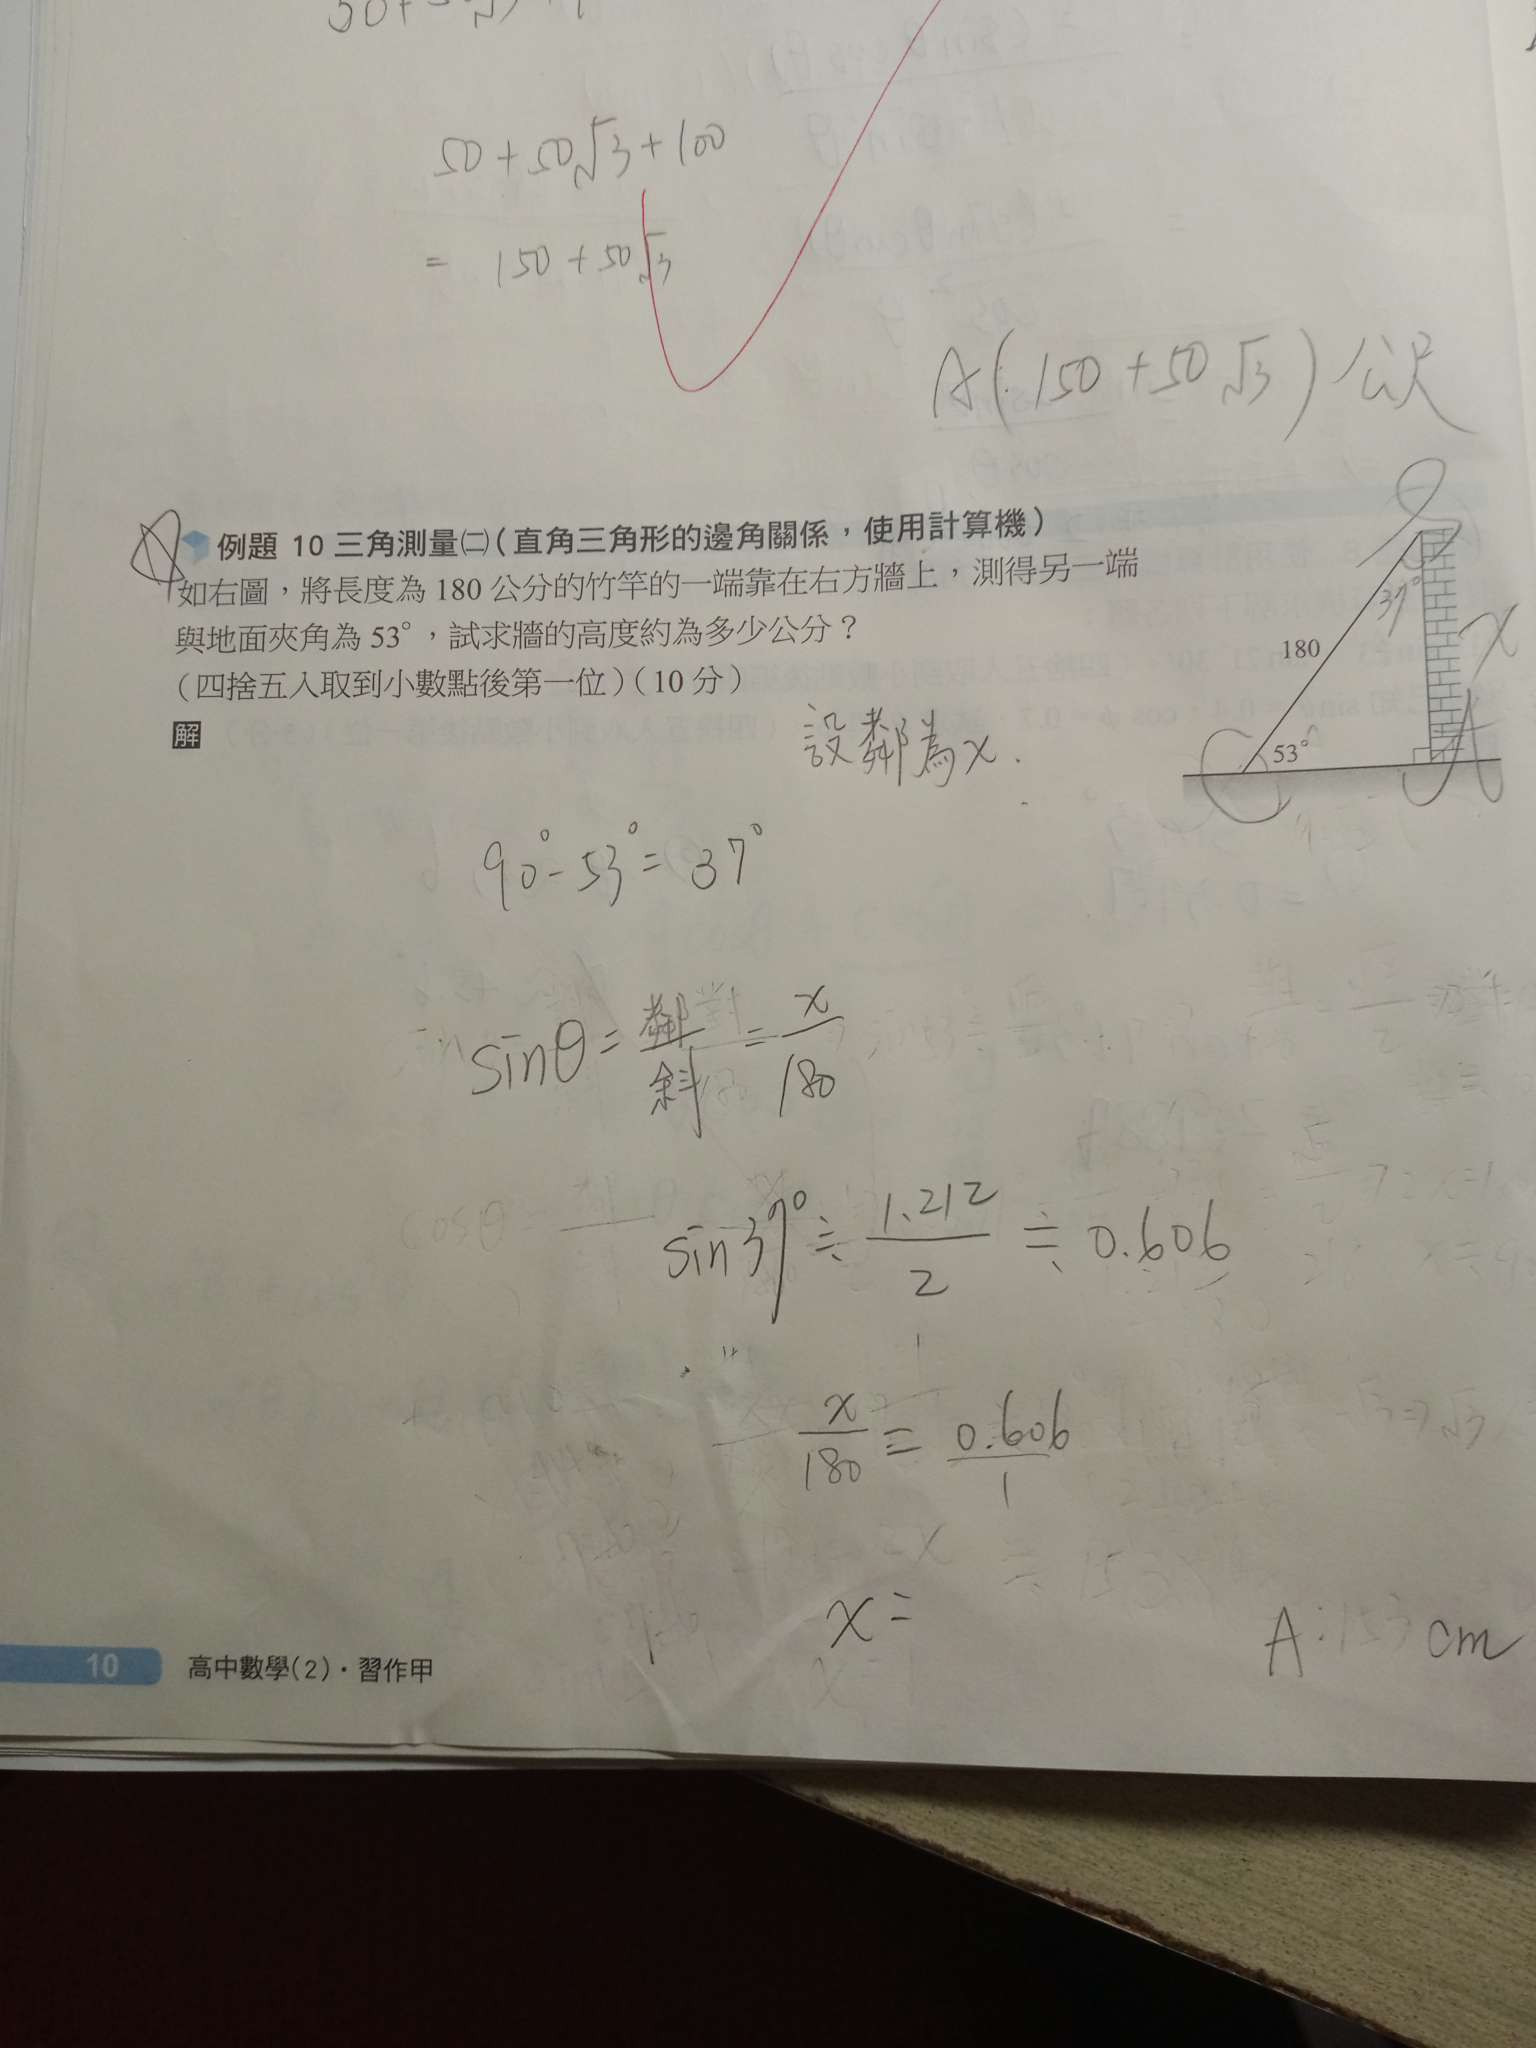 50+50√3+100
= 150+50√3
A(150+50√3)公尺
例題 10 三角測量㈡(直角三角形的邊角關係,使用計算機)
如右圖,將長度為 180 公分的竹竿的一端靠在右方牆上,測得另一端
與地面夾角為 53°,試求牆的高度約為多少公分?
(四捨五入取到小數點後第一位)(10 分)
解
37°
180
x
53°
設鄰為x.
90°-53°=37°
sinθ=鄰/斜=x/180
sin37°≒1.212/2≒0.606
x/180≒0.606/1
x=
A:153cm
10 高中數學(2)·習作甲